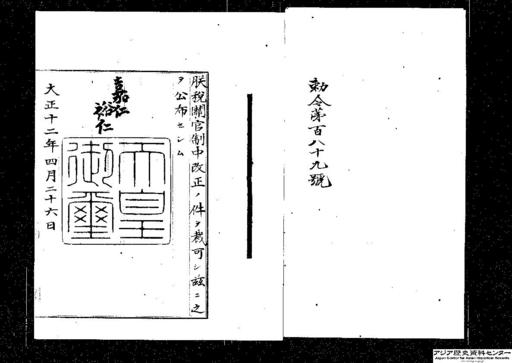 勅令第百八十九號
朕税關官制中改正ノ件ヲ裁可シ茲ニ之
ヲ公布セシム
嘉仁
裕仁
天皇
御璽
大正十二年四月二十六日
アジア歴史資料センター
Japan Center for Asian Historical Records